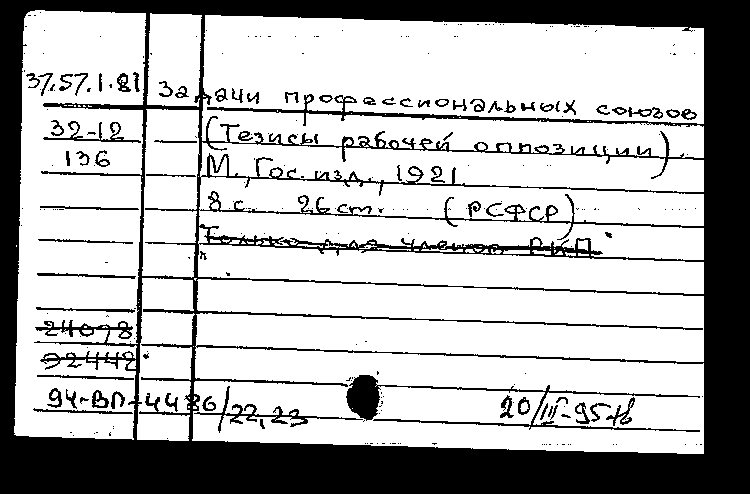 37.57.1.81 Задачи профессиональных союзов
32-12 (Тезисы рабочей оппозиции).
136 М., Гос. изд., 1921.
8 с. 26 cm. (РСФСР).
Только для членов РКП.
24098
92442
94-ВП-4486/22,23 20/III-95